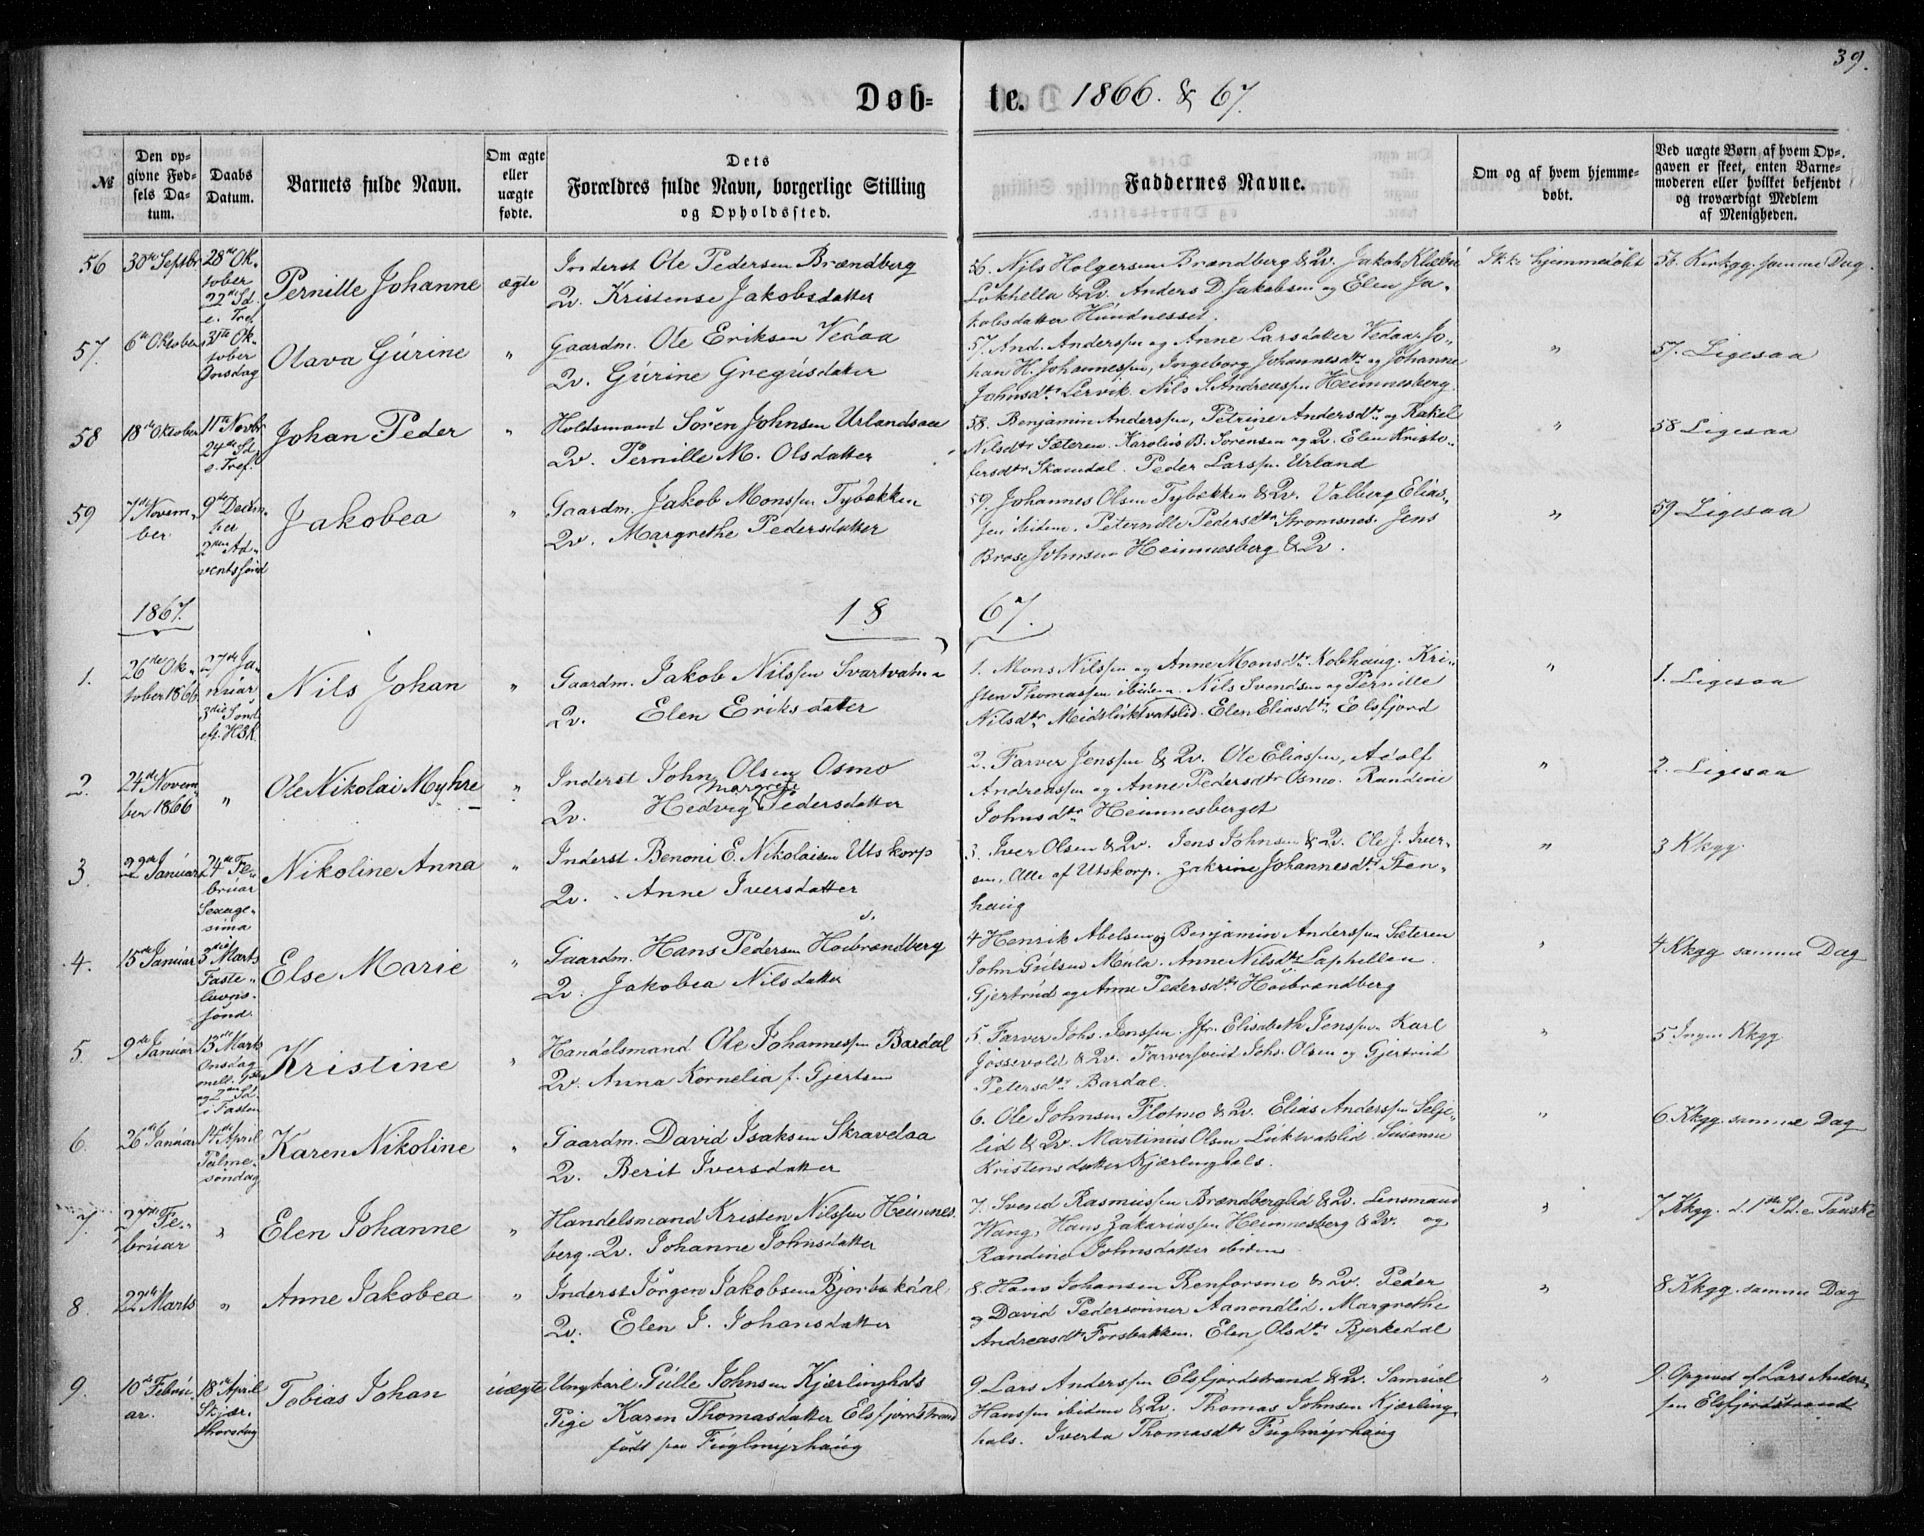 39.
Døb-te. 1866. & 67.
№
Den opgivne Fødsels Datum.
Daabs Datum.
Barnets fulde Navn.
Om ægte eller uægte fødte.
Dets Forældres fulde Navn, borgerlige Stilling og Opholdssted.
Faddernes Navne.
Om og af hvem hjemmedøbt.
Ved uægte Børn af hvem Opgaven er skeet, enten Barnemoderen eller hvilket bekjendt og troværdigt Medlem af Menigheden.
56 30te Septbr 28de Oktober 22de Sd. e. Tref. Pernille Johanne ægte
Inderst Ole Pedersen Brændberg
Qv. Kristense Jakobsdatter
56. Nils Holgersen Brændberg & Qv. Jakob
Lökhella & Qv. Anders D. Jakobsen og Elen Ja-
kobsdatter Hundnesset.
Ikke hjemmedöbt
56. Kirkgg. samme Dag
57. 6te Oktober 31te Oktober Onsdag Olava Gurine "
Gaardm. Ole Eriksen Vedaa
Qv. Gurine Gregusdatter
57. And. Anderssen og Anne Larsdatter Vedaa. Jo-
han H. Johannessen, Ingeborg Johannesdtr og Johanne
Johnsdtr Lervik. Nils S. Andreassen Heimnesberg.
"
57. Ligesaa
58 18de Oktober 11te Novbr 24de Sd. e. Tref. Johan Peder "
Holdsmand Sören Johnsen Urlandsaae
Qv. Pernille M. Olsdatter
58. Benjamin Anderssen, Petrine Andersdtr og Rakel
Nilsdtr Sæteren. Karolius B. Sörensen og Qv. Elen Kristo-
fersdtr Skamdal. Peder Larssen Urland
"
58 Ligesaa
59 7de November 9de December 2den Adventssönd Jakobea "
Gaardm. Jakob Monssen Tybækken
Qv. Margrethe Pedersdatter
59. Johannes Olsen Tybækken & Qv. Valberg Elias-
sen ibidem. Peternille Pedersdtr Stromsnes. Jens
Brose Johnsen Heimnesberg & Qv.
"
59 Ligesaa
1867. 18 67.
1. 26de Oktober 1866 27de Januar 3die Sönd. eft. H3K. Nils Johan "
Gaardm. Jakob Nilssen Svartvatn
Qv. Elen Eriksdatter
1. Mons Nilssen og Anne Monsdtr Nobhaug. Kri-
sten Thomassen ibidem. Nils Svendsen og Pernille
Nilsdtr Meidslüktvatslid. Elen Eliasdtr Elsfjord
"
1. Ligesaa
2. 24de November 1866 " Ole Nikolai Myhre "
Inderst John Olsen Osmo
Qv. Hedvig Margrete Pedersdatter
2. Farver Jenssen & Qv. Ole Eliassen, Adolf
Andreassen og Anne Pedersdtr Osmo. Randine
Johnsdtr Heimnesberget
"
2. Ligesaa
3. 22de Januar 24de Februar Sexagesima Nikoline Anna "
Inderst Benoni E. Nikolaisen Utskorp
Qv. Anne Iversdatter
3. Iver Olsen & Qv. Jens Johnsen & Qv. Ole J. Iver-
sen, Alle af Utskorp. Zakrine Johannesdtr Sten-
haug
"
3 Kkgg.
4. 15de Januar 3die Marts Fastelavns-sönd. Else Marie "
Gaardm. Hans Pedersen Hoibrændberg
Qv. Jakobea Nilsdatter
4 Henrik Abelsen og Benjamin Anderssen Sæteren
John Gulsen Mula. Anne Nilsdtr Laphellen.
Gjertrud og Anne Pedersdtr Höibrændberg
"
4 Kkgg samme Dag
5. 9de Januar 13de Marts Onsdag mell. 1ste og 2den Sd. i Fasten Kristine "
Handelsmand Ole Johannessen Bardal
Qv. Anna Kornelia f. Gjertsen
5. Farver Johs. Jenssen. Jfr. Elisabeth Jenssen. Karl
Jössevold & Qv. Farversvend Johs. Olsen og Gjertrud
Petersdtr Bardal.
"
5 Ingen Kkgg
6. 26de Januar 14de April Palmesöndag Karen Nikoline "
Gaardm. David Isaksen Skravelaa
Qv. Berit Iversdatter
6. Ole Johnsen Flotmo & Qv. Elias Anderssen Selje-
lid & Qv. Martinus Olsen Lüktvatslid. Susanne
Kristensdatter Kjærlinghals.
"
6. Kkgg. samme Dag
7. 27de Februar " Elen Johanne "
Handelsmand Kristen Nilssen Heimnes-
berg. Qv. Johanne Johnsdatter
7. Svend Rasmussen Brændberglid & Qv. Lensmand
Wang, Hans Zakariassen Heimnesberg & Qv. og
Randine Johnsdatter ibidem
"
7 Kkgg. d. 1ste Sd. e. Paaske
8. 22de Marts " Anne Jakobea "
Inderst Jörgen Jakobsen Bjorbækdal
Qv. Elen J. Johansdatter
8. Hans Johansen Renforsmo & Qv. Peder
og David Pedersönner Aanondlid. Margrethe
Andreasdtr Forsbakken. Elen Olsdtr Bjerkedal
"
8 Kkgg. samme Dag
9. 10de Februar. 18de April Skjærthorsdag Tobias Johan uægte
Ungkarl Gulle Johnsen Kjærlinghals
Pige Karen Thomasdatter Elsfjordstrand
født paa Fuglmyrhaug
9. Lars Anderssen Elsfjordstrand & Qv. Samuel
Hanssen ibidem & Qv. Thomas Johnsen Kjærling-
hals. Iverta Thomasdtr Fuglmyrhaug
"
9. Opgivet af Lars Anders-
sen Elsfjordstrand